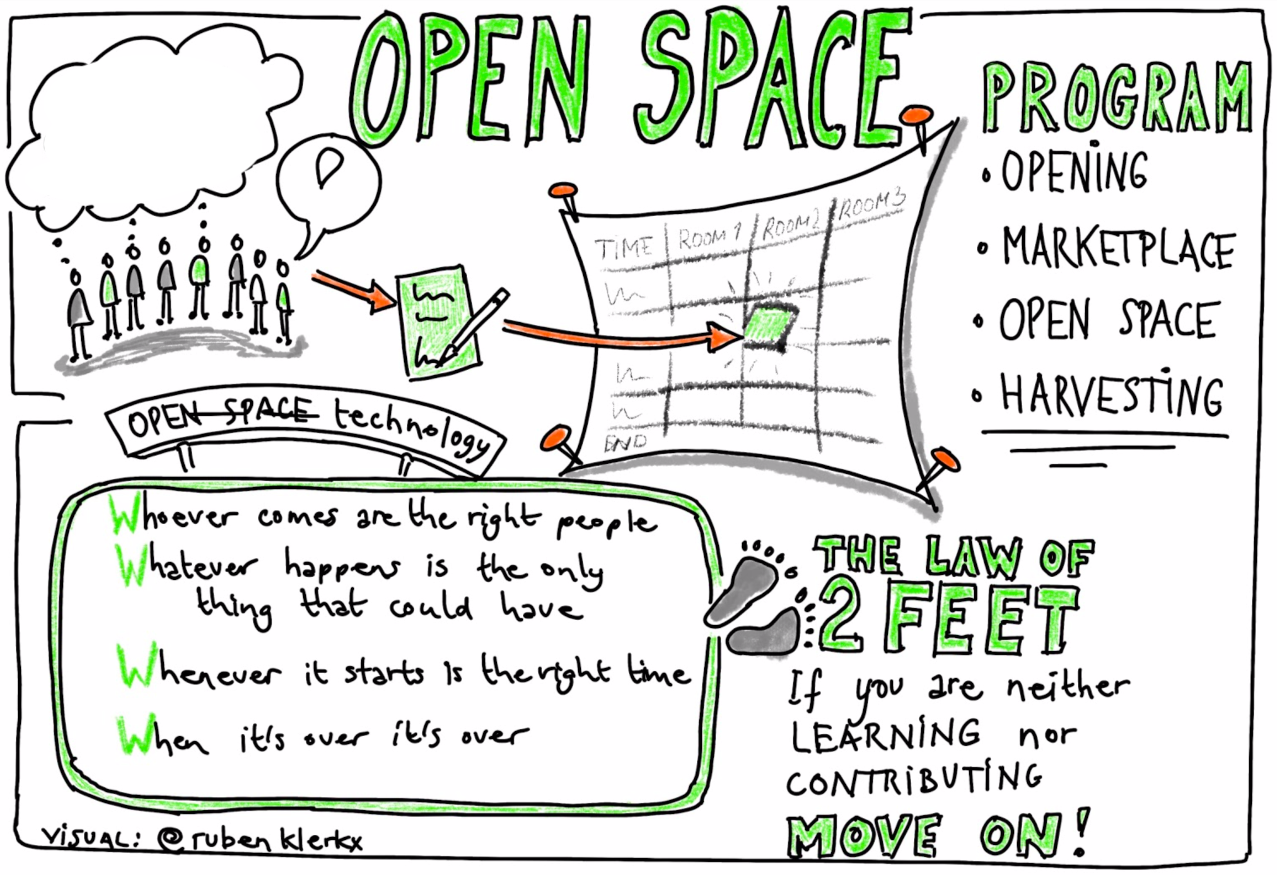 OPEN SPACE
PROGRAM
• OPENING
• MARKETPLACE
• OPEN SPACE
• HARVESTING
TIME ROOM 1 ROOM 2 ROOM 3
END
OPEN SPACE technology
Whoever comes are the right people
Whatever happens is the only
thing that could have
Whenever it starts is the right time
When it's over it's over
THE LAW OF
2 FEET
If you are neither
LEARNING nor
CONTRIBUTING
MOVE ON!
VISUAL: @rubenklerkx